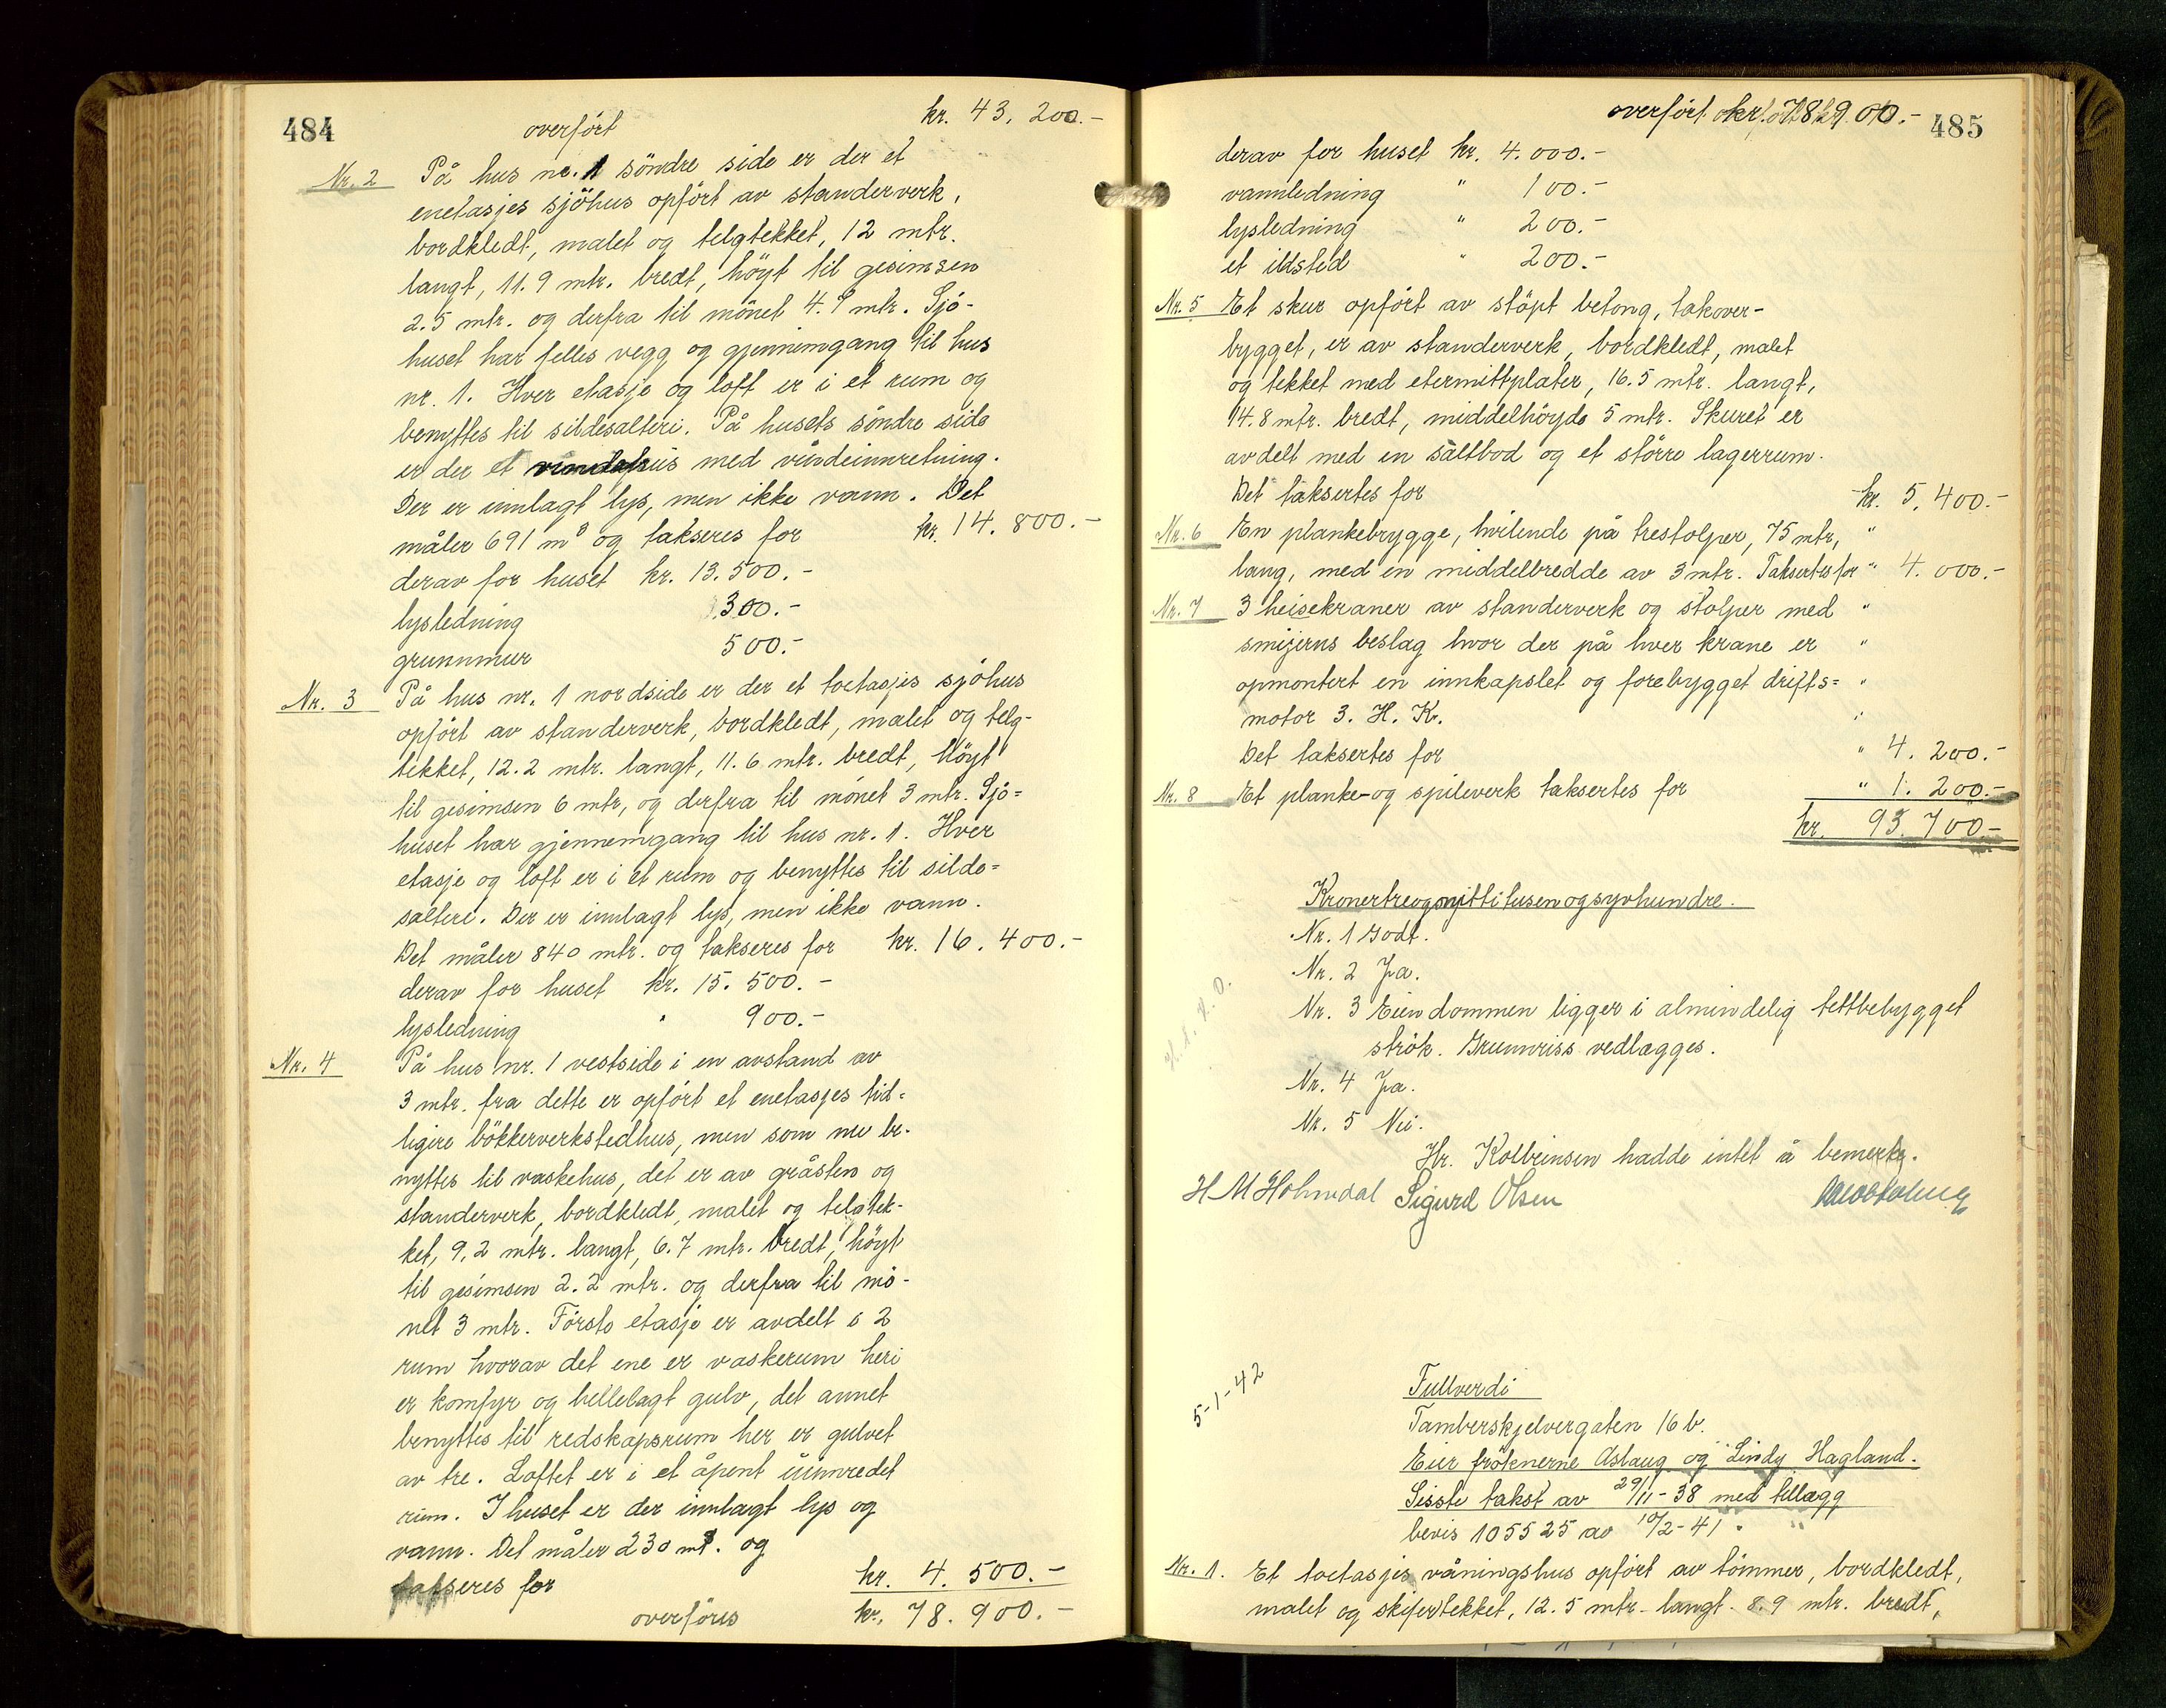 484
overfört kr. 43. 200.-
Nr. 2 På hus nr. 1 söndre side er der et
enetasjes sjöhus opfört av standerverk,
bordkledt, malet og telgtekket, 12 mtr.
langt, 11.9 mtr. bredt, höyt til gesimsen
2.5 mtr. og derfra til mönet 4.9 mtr. Sjö-
huset har felles vegg og gjennemgang til hus
nr. 1. Hver etasje og loft er i et rum og
benyttes til sildesalteri. På husets söndre side
er der et vindehus med vindeinnretning.
Der er innlagt lys, men ikke vann. Det
måler 691 m³ og takseres for kr. 14. 800.-
derav for huset kr. 13. 500.-
lysledning 300.-
grunnmur 500.-
Nr. 3 På hus nr. 1 nordside er der et toetasjes sjöhus
opfört av standerverk, bordkledt, malet og telg-
tekket, 12.2 mtr. langt, 11.6 mtr. bredt, höyt
til gesimsen 6 mtr, og derfra til mönet 3 mtr. Sjö=
huset har gjennemgang til hus nr. 1. Hver
etasje og loft er i et rum og benyttes til silde=
salteri. Der er innlagt lys, men ikke vann.
Det måler 840 mtr. og takseres for kr. 16. 400.-
derav for huset kr. 15. 500.-
lysledning " 900.-
Nr. 4 På hus nr. 1 vestside i en avstand av
3 mtr. fra dette er opfört et enetasjes tid=
ligere bökkerverkstedhus, men som nu be-
nyttes til vaskehus, det er av gråsten og
standerverk, bordkledt, malet og telgtek-
ket, 9.2 mtr. langt, 6.7 mtr. bredt, höyt
til gesimsen 2.2 mtr. og derfra til mö-
net 3 mtr. Förste etasje er avdelt i 2
rum hvorav det ene er vaskerum heri
er komfyr og hellelagt gulv, det annet
benyttes til redskapsrum her er gulvet
av tre. Loftet er i et åpent uinnredet
rum. I huset er der innlagt lys og
vann. Det måler 230 m³. og
takseres for kr. 4. 500.-
overföres kr. 78. 900.-
overfört kr. 78 900.- 485
derav for huset kr. 4.000.-
vannledning " 100.-
lysledning " 200.-
et ildsted " 200.-
Nr. 5 Et skur opfört av stöpt betong, takover-
bygget, er av standerverk, bordkledt, malet
og tekket med etermittplater, 16.5 mtr. langt,
14.8 mtr. bredt, middelhöyde 5 mtr. Skuret er
avdelt med en saltbod og et större lagerrum.
Det taksertes for kr. 5. 400.-
Nr. 6 En plankebrygge, hvilende på trestolper, 75 mtr, "
lang, med en middelbredde av 3 mtr. Taksertes for " 4. 000.-
Nr. 7 3 heisekraner av standerverk og stolper med "
smijerns beslag hvor der på hver krane er "
opmontert en innkapslet og forebygget drifts= "
motor 3. H. Kr. "
Det taksertes for " 4. 200.-
Nr. 8 Et planke- og spileverk taksertes for " 1. 200.-
kr. 93. 700-
Kronertreognittitusenogsyvhundre.
Nr. 1 Godt.
Nr. 2 Ja.
Nr. 3 Eiendommen ligger i almindelig tettbebygget
strök. Grunnriss vedlægges.
Nr. 4 Ja.
Nr. 5 Nei.
Hr. Kolbeinsen hadde intet å bemerke.
H M Holmedal Sigurd Olsen
5-1-42
Fullverdi
Tamberskjelvergaten 16 b.
Eier fröknerne Aslaug og Lindy Hagland.
Sisste takst av 29/11-38 med tillægg
bevis 105525 av 10/2-41.
Nr. 1. Et toetasjes våningshus opfört av tömmer, bordkledt,
malet og skifertekket, 12.5 mtr. langt. 8.9 mtr. bredt,